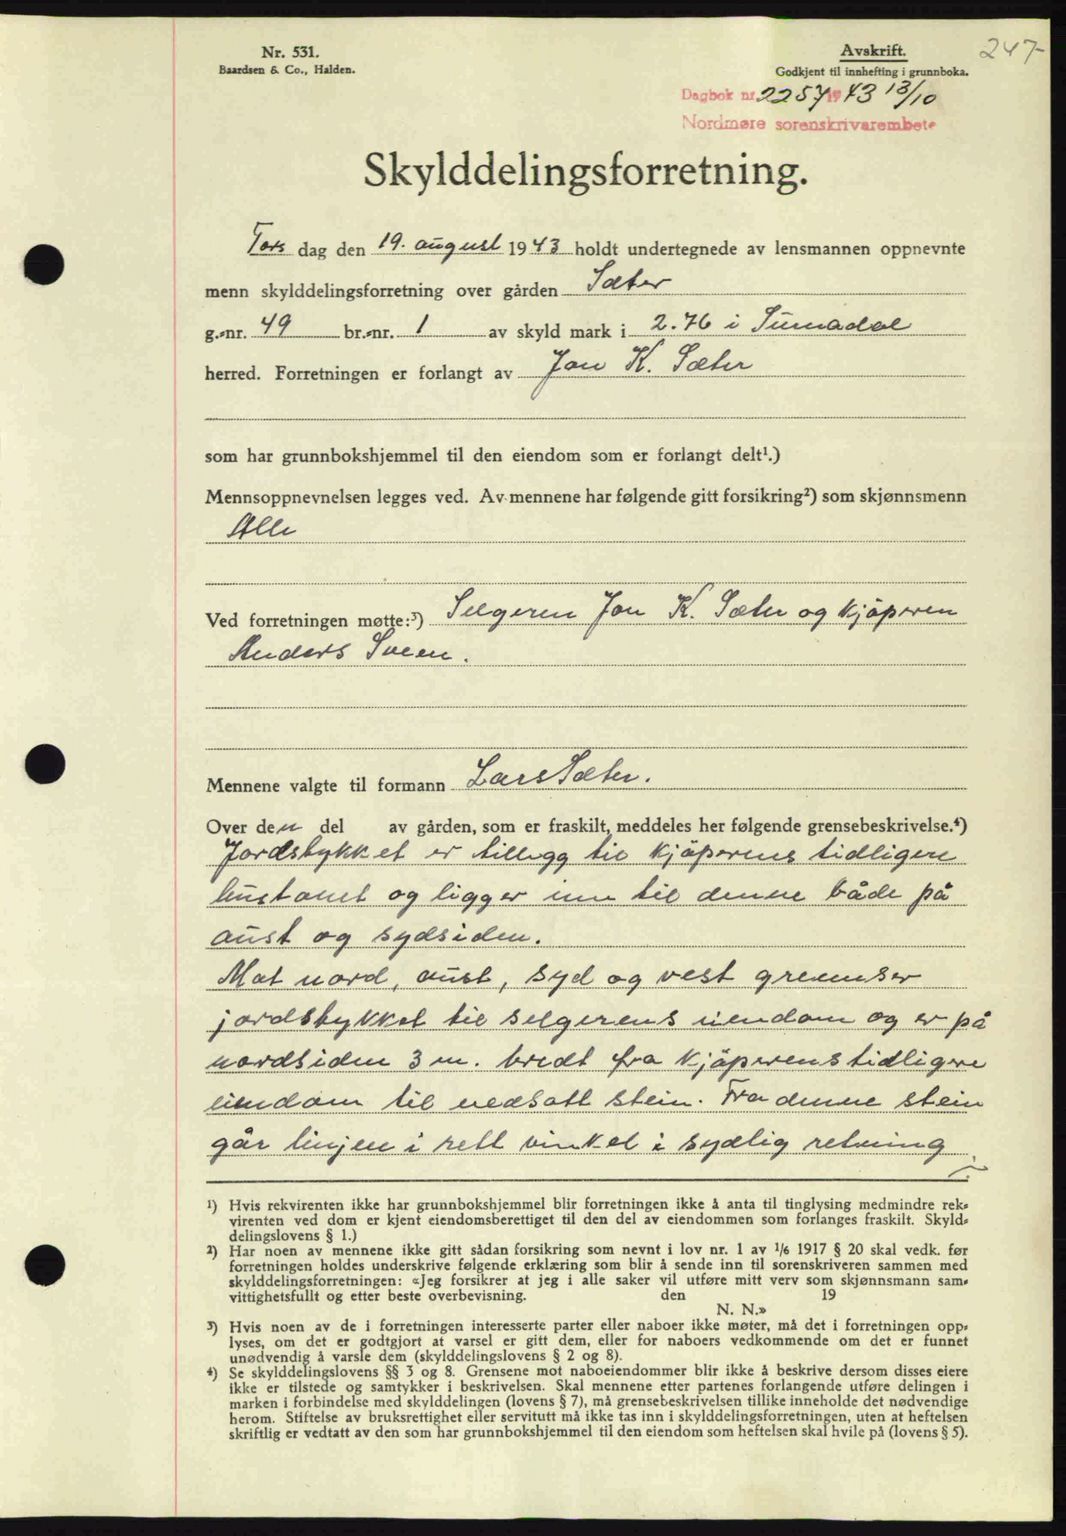 Nr. 531.
Baardsen & Co., Halden.
Avskrift.
Godkjent til innhefting i grunnboka.
247-
Dagbok nr. 2257 1943 13/10
Nordmøre sorenskrivarembete
Skylddelingsforretning.
Tors dag den 19. august 1943 holdt undertegnede av lensmannen oppnevnte
menn skylddelingsforretning over gården Sæter
g.-nr. 49 br.-nr. 1 av skyld mark i 2.76 i Surnadal
herred. Forretningen er forlangt av Jon K. Sæter
som har grunnbokshjemmel til den eiendom som er forlangt delt¹.)
Mennsoppnevnelsen legges ved. Av mennene har følgende gitt forsikring²) som skjønnsmenn
Alle
Ved forretningen møtte:³) Selgeren Jon K. Sæter og kjöperen
Anders Sveen.
Mennene valgte til formann Lars Sæter.
Over den del av gården, som er fraskilt, meddeles her følgende grensebeskrivelse.⁴)
Jordstykket er tillegg til kjöperens tidligere
bustomt og ligger inn til denne både på
aust og sydsiden.
Mot nord, aust, syd og vest grenser
jordstykket til selgerens eiendom og er på
nordsiden 3 m. bredt fra kjöperens tidligere
eiendom til nedsatt stein. Fra denne stein
går linjen i rett vinkel i sydlig retning
¹) Hvis rekvirenten ikke har grunnbokshjemmel blir forretningen ikke å anta til tinglysing medmindre rek-
virenten ved dom er kjent eiendomsberettiget til den del av eiendommen som forlanges fraskilt. Skyld-
delingslovens § 1.)
²) Har noen av mennene ikke gitt sådan forsikring som nevnt i lov nr. 1 av ¹/₆ 1917 § 20 skal vedk. før
forretningen holdes underskrive følgende erklæring som blir å sende inn til sorenskriveren sammen med
skylddelingsforretningen: «Jeg forsikrer at jeg i alle saker vil utføre mitt verv som skjønnsmann sam-
vittighetsfullt og etter beste overbevisning. den 19
N. N.»
³) Hvis noen av de i forretningen interesserte parter eller naboer ikke møter, må det i forretningen opp-
lyses, om det er godtgjort at varsel er gitt dem, eller for naboers vedkommende om det er funnet
unødvendig å varsle dem (skylddelingslovens § 2 og 8).
⁴) Se skylddelingslovens §§ 3 og 8. Grensene mot naboeiendommer blir ikke å beskrive dersom disses eiere
ikke er tilstede og samtykker i beskrivelsen. Skal mennene etter partenes forlangende utføre delingen i
marken i forbindelse med skylddelingen (lovens § 7), må grensebeskrivelsen tillike inneholde det nødvendige
herom. Stiftelse av bruksrettighet eller servitutt må ikke tas inn i skylddelingsforretningen, uten at heftelsen
skriftlig er vedtatt av den som har grunnbokshjemmel til den eiendom som heftelsen skal hvile på (lovens § 5).